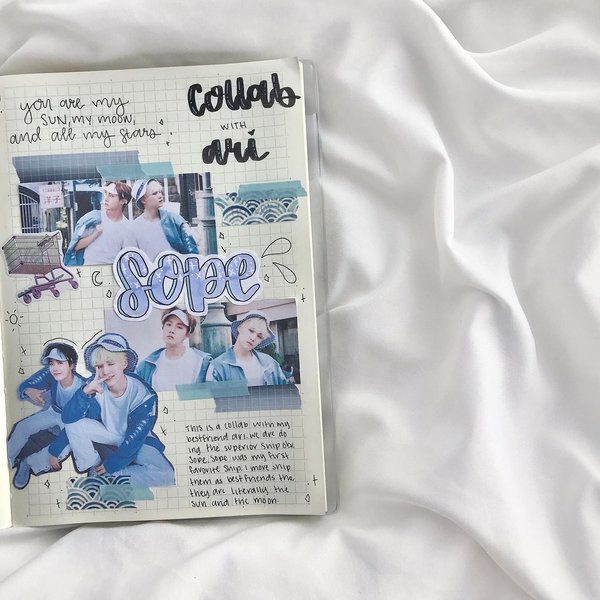 you are my
SUN, MY MOON,
and all my stars.
Collab
WITH
ari
洋子
Sope
This is a collab with my
bestfriend ari. We are do
ing the superior ship btx
Sope. Sope was my first
favorite ship. I more ship
them as bestfriends tho,
they are literally the
sun and the moon